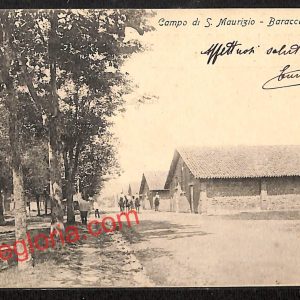 Campo di S. Maurizio - Baracc
Affettuosi salut
egloria.com